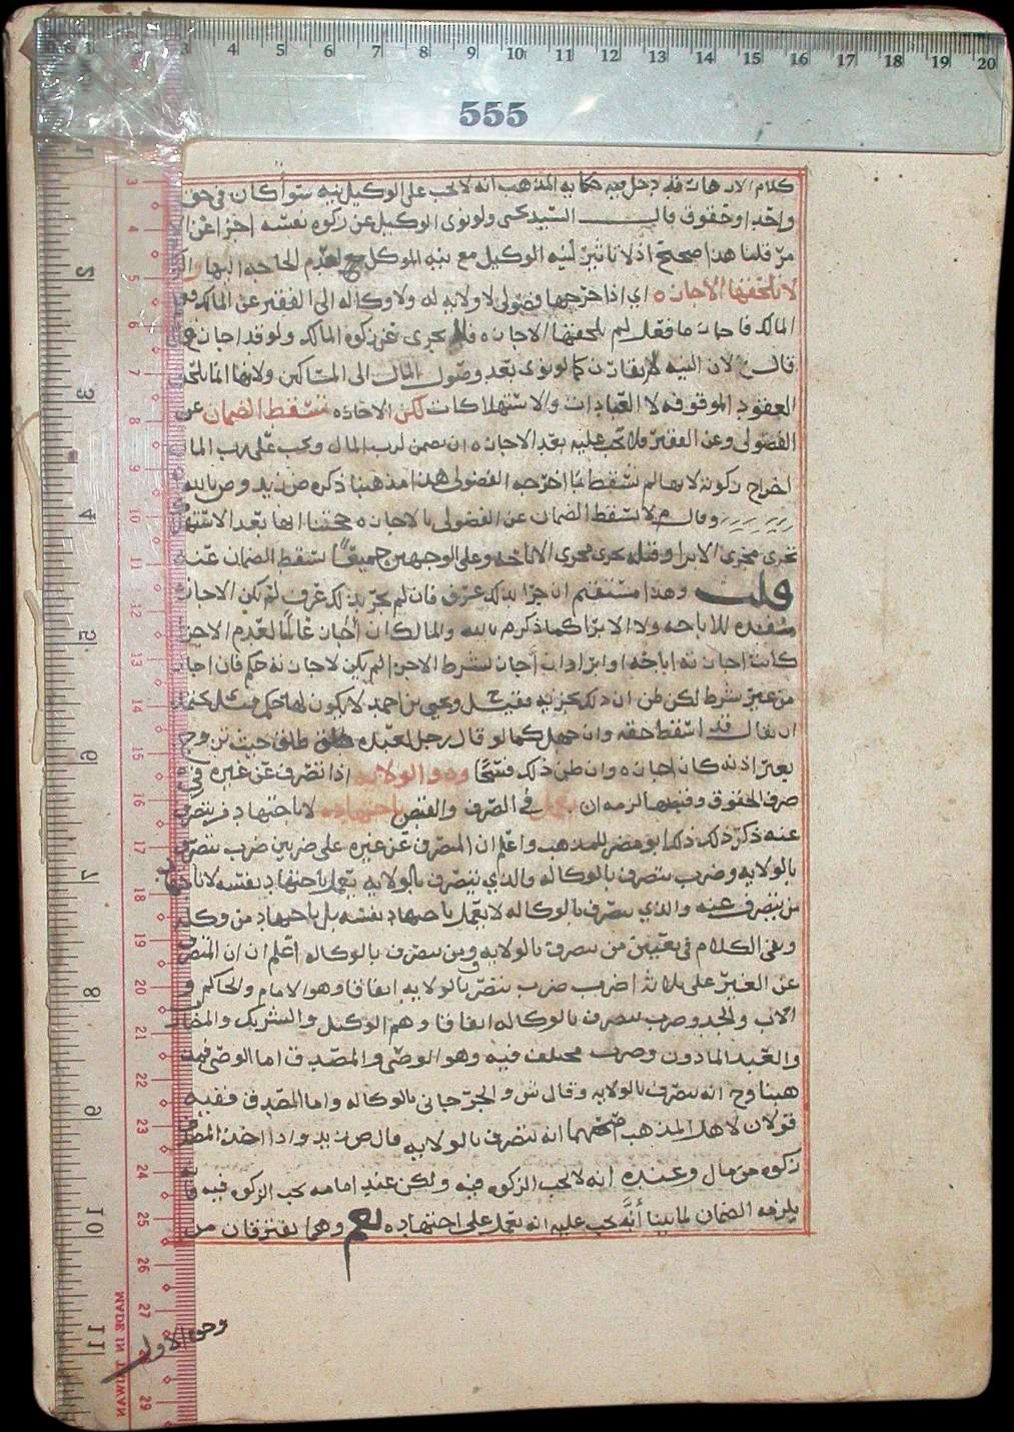 555
كلام الازهار قيل يدخل فيه حكايه المذهب انه لا يجب على الوكيل نيه سوآ كان في حق
واحد او حقوق قال السيد يحيى ولو نوى الوكيل عن زكوه نفسه اجزا عن
من قلنا هذا صحيح اذ لا تاثير لنيه الوكيل مع نيه الموكل لعدم الحاجه اليها
لا تلحقها الاجازه اي اذا اخرجها فضولي لا ولايه له ولا وكاله الى الفقير عن المالك
المالك فاجاز ما فعل لم تلحقها الاجازه فلا يجزى عن زكوة المالك ولو قد اجاز
قال لان النيه لا تقارن كما لو نوى بعد وصول المال الى المساكين ولانها انما تلحق
العقود الموقوفه لا العبادات والاستهلاكات لكن الاجازه تسقط الضمان عن
الفضولي وعن الفقير فلا يجب عليه بعد الاجازه ان يضمن لرب المال ويجب على رب المال
اخراج زكوته لانها لم تسقط بما اخرجه الفضولي هذا مذهبنا ذكره ص زيد وص بالله
وقال م لا تسقط الضمان عن الفضولي بالاجازه حجتنا انها بعد الاستهلاك
تجرى مجرى الابرا وقبله تجرى مجرى الاباحه وعلى الوجهين جميعًا تسقط الضمان عنه
قلت وهذا مستقيم ان جرا بذلك عرف فان لم يجر بذلك عرف لم تكن الاجازه
مفيده للاباحه ولا الابرا كما ذكر م بالله والمالك ان اجاز عالمًا لعدم الاجزا
كانت اجازته اباحة او ابرا وان اجاز بشرط الاجزا لم يكن لاجازته حكم فان اجاز
من غير شرط لكن ظن ان ذلك يجزيه فقيل ويحيى بن احمد لا يكون لها حكم
ان يقال قد اسقط حقه وان جهل كما لو قال رجل لعبده طالق
بغير اذنه كان اجازه وان ظن ذلك فسخًا وذو الولايه اذا تصرف عن غيره في
صرف الحقوق وقبضها لزمه ان يعمل في الصرف والقبض باجتهاده لا باجتهاد من يتصرف
عنه ذكر ذلك ابو مضر للمذهب واعلم ان المتصرف عن غيره على ضربين ضرب يتصرف
بالولايه وضرب يتصرف بالوكاله والذي يتصرف بالولايه يعمل باجتهاد نفسه لا باجتهاد
من يتصرف عنه والذي يتصرف بالوكاله لا يعمل باجتهاد نفسه بل باجتهاد من وكله
وبقي الكلام في تعيين من يتصرف بالولايه ومن يتصرف بالوكاله اعلم ان المتصرف
عن الغير على ثلاثة اضرب ضرب يتصرف بالولايه اتفاقا وهو الامام والحاكم و
الاب والجد وضرب يتصرف بالوكاله اتفاقا وهم الوكيل والشريك والمضارب
والعبد الماذون وضرب مختلف فيه وهو الوصي والمصدق اما الوصي فمذ
هبنا وح انه يتصرف بالولايه وقال ش والجرجاني بالوكاله واما المصدق ففيه
قولان لاهل المذهب اصحهما انه يتصرف بالولايه قال ص زيد واذا اخذ المصدق
زكوه من مال وعنده انه لا تجب الزكوه فيه ولكن عند امامه تجب الزكوه فيه
يلزمه الضمان لما بينا أنَّه يجب عليه انه يعمل على اجتهاده نعم وهما يفترقان من
وجوه الاول